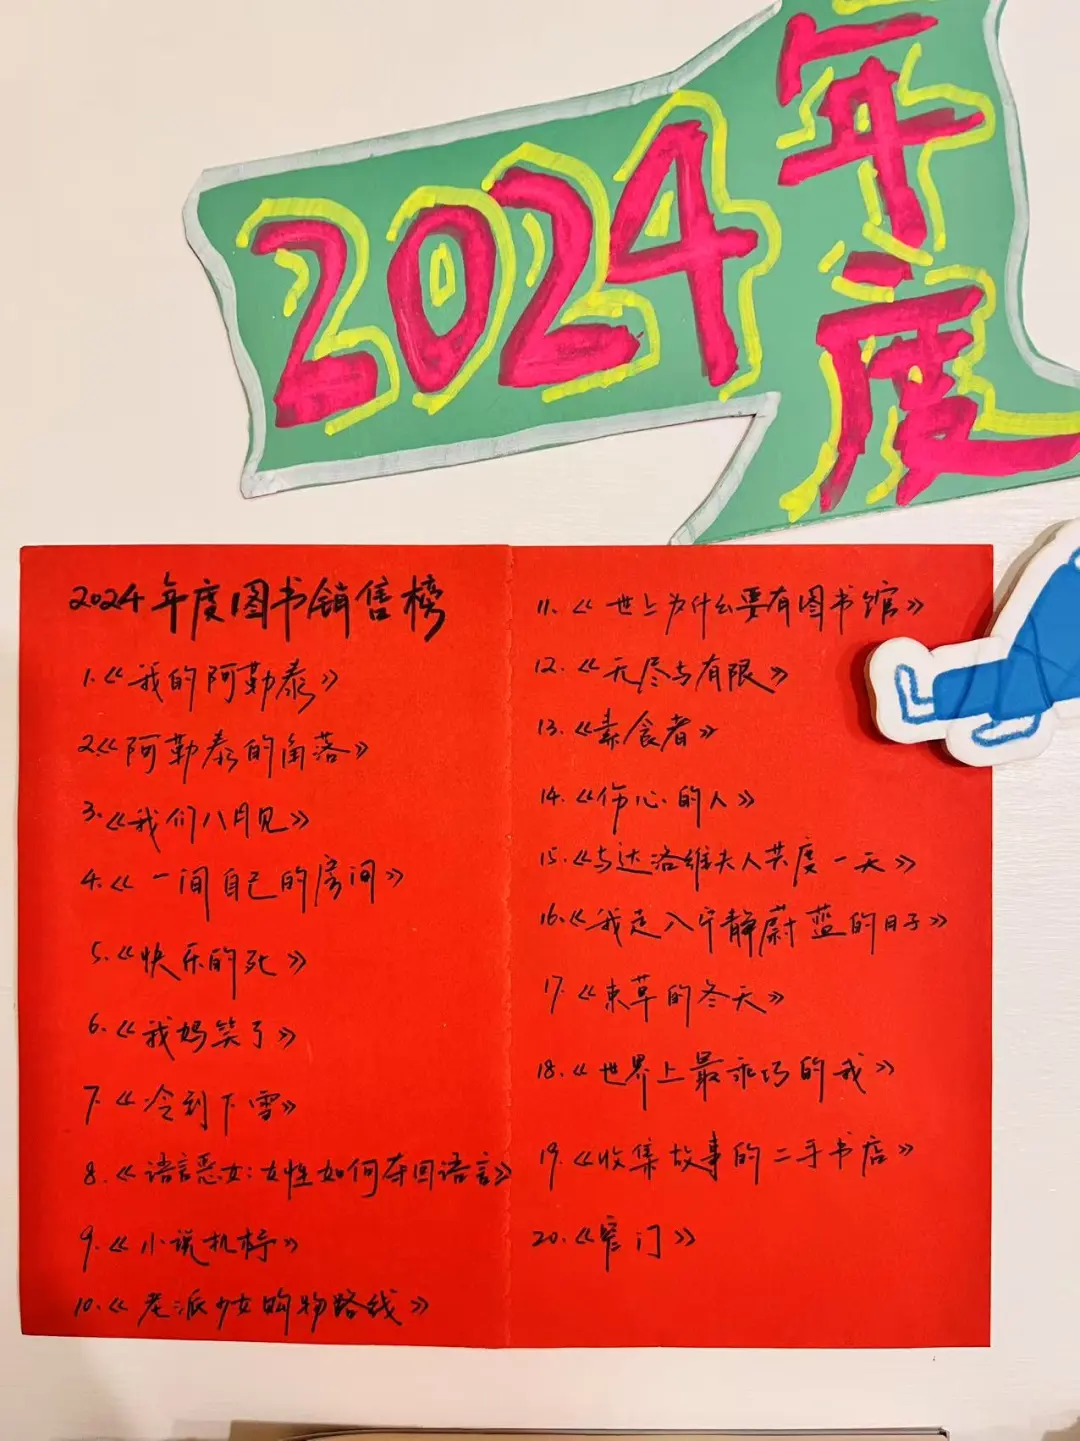 2024
年度
2024年度图书销售榜
1.《我的阿勒泰》
2.《阿勒泰的角落》
3.《我们八月见》
4.《一间自己的房间》
5.《快乐的死》
6.《我妈笑了》
7.《冷到下雪》
8.《语言恶女:女性如何夺回语言》
9.《小说机杼》
10.《老派少女购物路线》
11.《世上为什么要有图书馆》
12.《无尽与有限》
13.《素食者》
14.《伤心的人》
15.《与达洛维夫人共度一天》
16.《我走入宁静蔚蓝的日子》
17.《束草的冬天》
18.《世界上最乖巧的我》
19.《收集故事的二手书店》
20.《窄门》